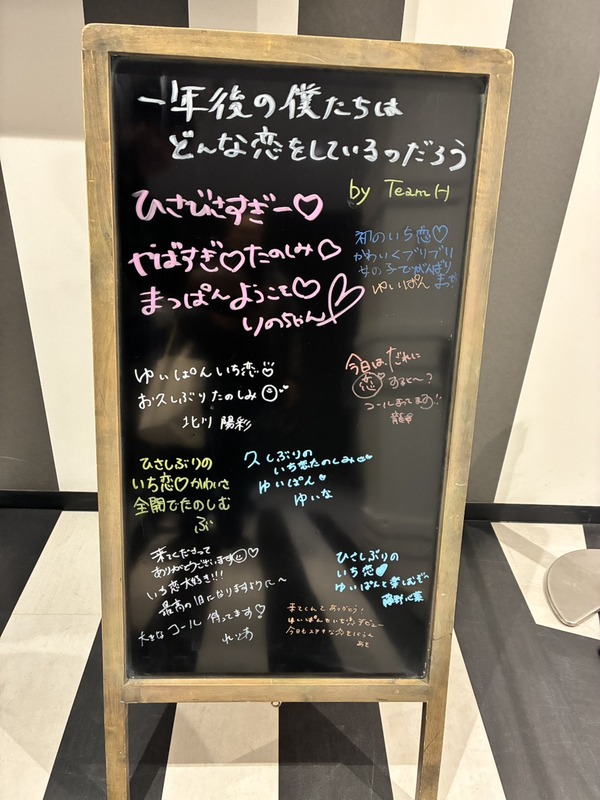 一年後の僕たちは
どんな恋をしているのだろう
by Team H
ひさびさすぎー♡
やばすぎ♡たのしみ♡
まっぱんようこそ♡
りのちゃん♡
初のいち恋♡
かわいくブリブリ
女の子でがんばり
まっす
ゆいぱん
ゆいぱんいち恋
お久しぶりたのしみ
北川 陽彩
今日は、だれに
恋すると〜?
コールまってます!!
ひさしぶりの
いち恋♡かわいさ
全開でたのしむ
ぶ
久しぶりの
いち恋たのしみ
ゆいぱん
ゆいな
来てくださって
ありがとうございます♡
いち恋大好き!!!
最高の1日になりますように〜
大きなコール 待ってます♡
ひさしぶりの
いち恋
ゆいぱんと楽しむぞ〜
藤野心葉
来てくれてありがとう!
ゆいぱんもいち恋デビュー